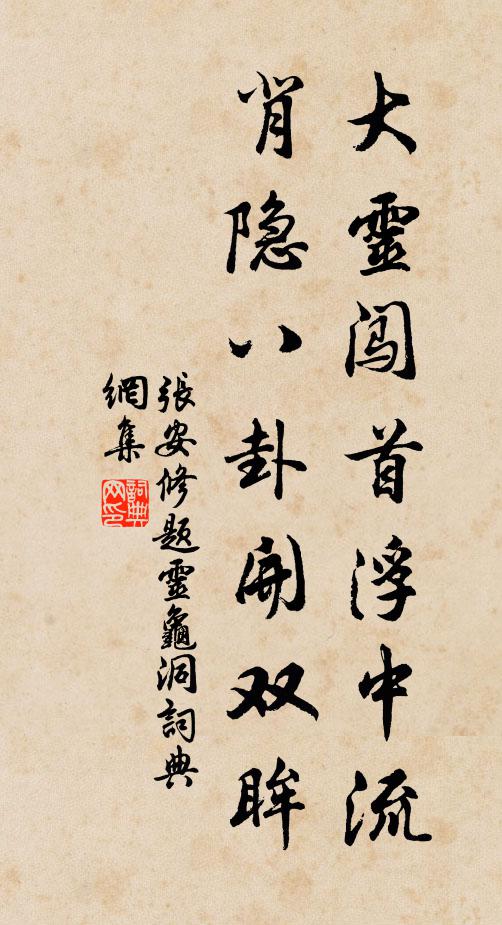 大靈闯首浮中流
肖隐八卦開双眸
張安修題靈龜洞詞典
網集
詞典
网印